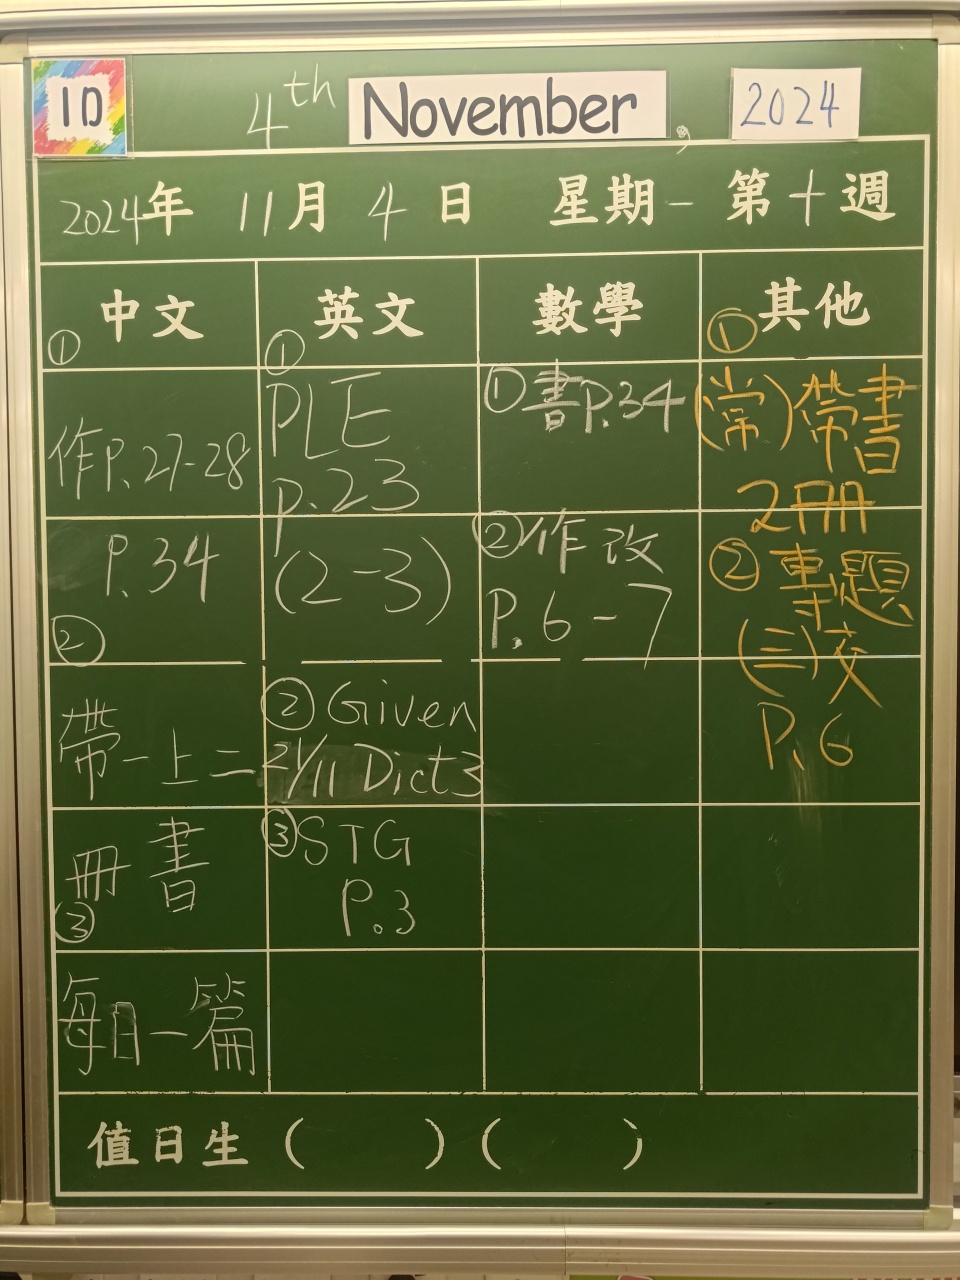 1D
4th November, 2024
2024年 11月 4日 星期一 第十週
中文
①
作P.27-28
P.34
②
帶一上二
冊書
③
每日一篇
英文
①
PLE
p.23
(2-3)
② Given
21/11 Dict3
③STG
P.3
數學
①書P.34
②作改
P.6-7
其他
①
(常)帶書
2冊
②專題
(三)交
P.6
值日生( )( )